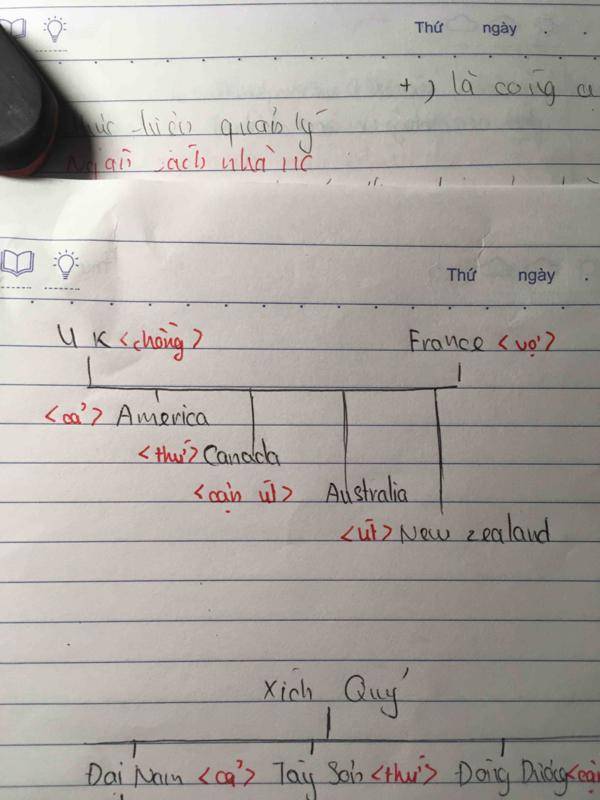 Thứ ngày . .
+) là công
quản lý
nhà nc
Thứ ngày .
UK <chồng> France <vợ>
<cả> America
<thứ> Canada
<cận út> Australia
<út> New zealand
Xích Quỷ
Đại Nam <cả> Tây Sơn <thứ> Đông Dương <cận